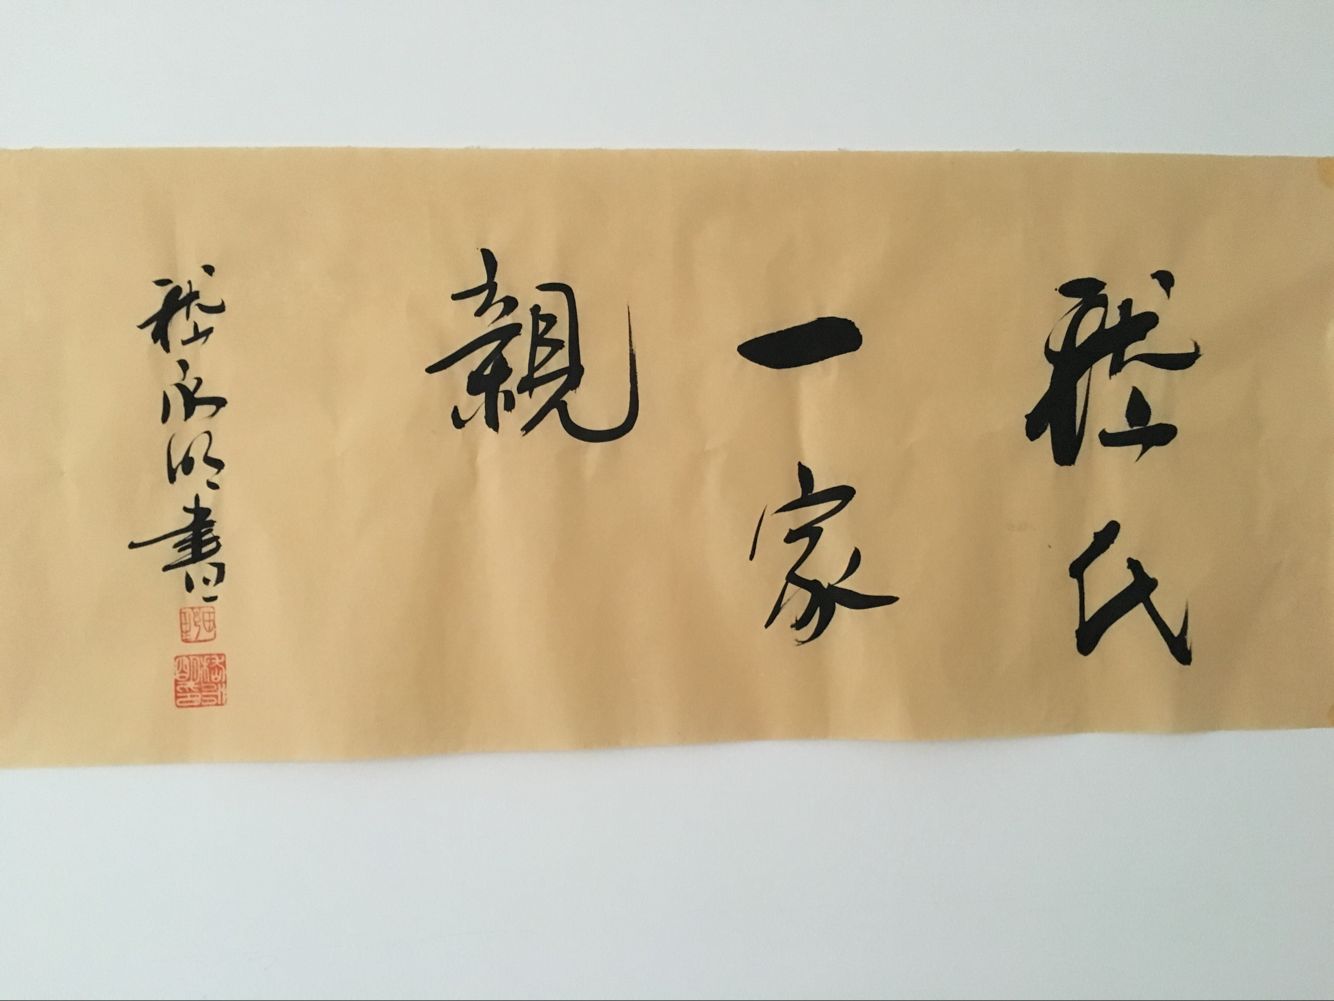 嵇氏
一家
親
嵇明書